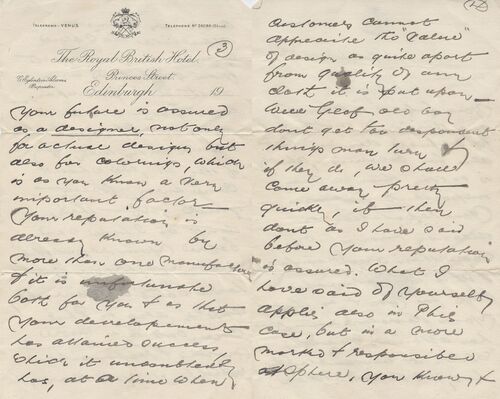 TELEGRAMS: VENUS.
The Royal British Hotel,
Princes Street,
Edinburgh 19
3
Proprietor.
Your future is assured
as a designer, not only
for actual designs but
also for colorings, which
is as you know a very
important factor
Your reputation is
already known by
more than one manufacturer
& it is unfortunate
both for you & us that
your development
has attained success
which it undoubtedly
has, at a time when
customers cannot
appreciate the "value"
of design as quite apart
from quality of any
cloth it is put upon
Well Geof old boy
dont get too despondent
things may turn
if they do, we shall
come away pretty
quickly, if they
dont as I have said
before your reputation
is assured. What I
have said of yourself
applies also in Phils
case, but in a more
marked & responsible
sphere, you know &